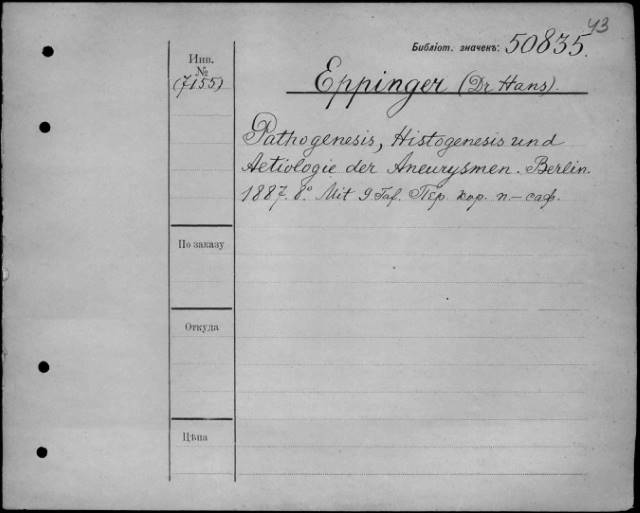 43
Библіот. значекъ: 50835.
Инв.
№
(7155)
Eppinger (Dr Hans).
Pathogenesis, Histogenesis und
Aetiologie der Aneurysmen. Berlin.
1887. 8º. Mit 9 Taf. Пер. кор. п.-саф.
По заказу
Откуда
Цѣна